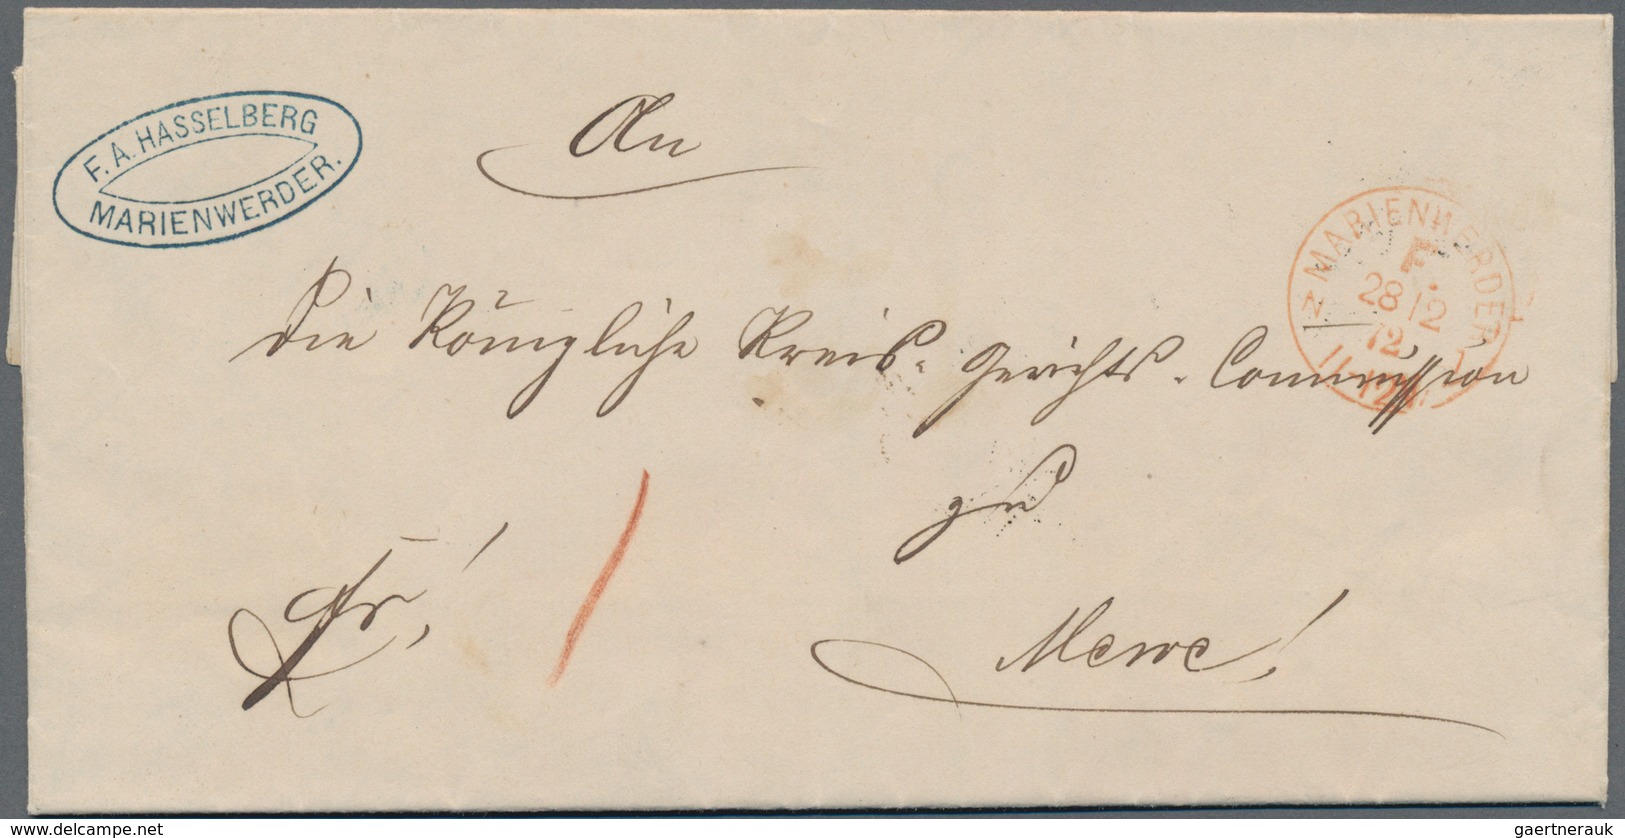 F. A. HASSELBERG
MARIENWERDER.
An
MARIENWERDER
F.
28/2
72
11-12
N
die Königliche Kreis-Gerichts-Commission
zu
fr!
Mewe!
www.delcampe.net
gaertnerauk